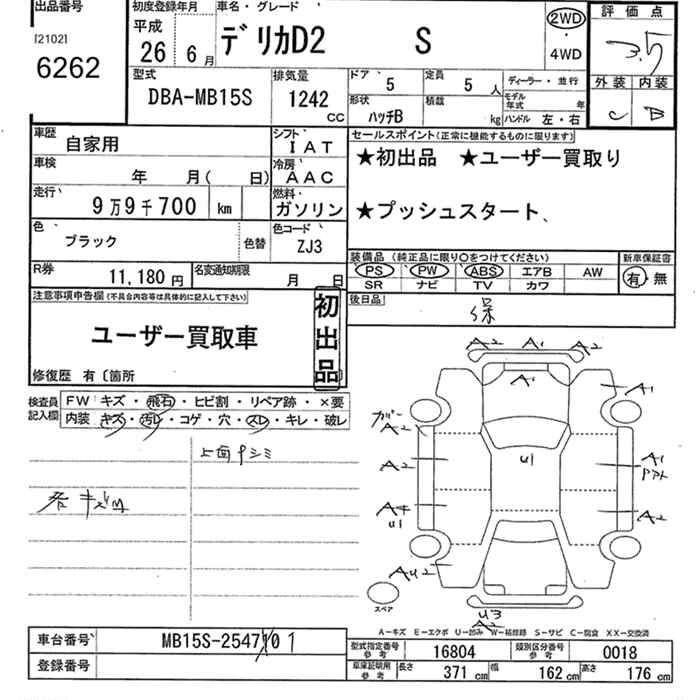 出品番号
[2102]
6262
初度登録年月
平成
26 6 月
車名・グレード
デリカD2 S
2WD
・
4WD
評価点
3.5
外装 内装
C B
型式
DBA-MB15S
排気量
1242 CC
ドア
5
定員
5 人
形状
ハッチB
積載
kg
ディーラー・並行
モデル年式 年
ハンドル 左・右
車歴
自家用
シフト
IAT
車検
年 月( 日)
冷房
AAC
走行
9万9千700 km
燃料
ガソリン
色
ブラック
色替
色コード
ZJ3
R券
11,180 円
名変通知期限
月 日
セールスポイント(正常に機能するものに限ります)
★初出品 ★ユーザー買取り
★プッシュスタート、
装備品 (純正品に限り○をつけてください)
PS PW ABS エアB AW
SR ナビ TV カワ
新車保証書
有・無
後日品
保
注意事項申告欄(不具合内容等は具体的に記入して下さい)
ユーザー買取車
初出品
修復歴 有〔箇所
検査員記入欄
FW キズ・飛石・ヒビ割・リペア跡・×要
内装 キズ・汚レ・コゲ・穴・スレ・キレ・破レ
上面Pシミ
A2 A1 A2
A1
A1
カバー
A2
A2
U1
A1
A4
U1
A2
AU2
スペア
U3
A2
A-キズ E-エクボ U-凹み W-補修跡 S-サビ C-腐食 XX-交換済
車台番号
MB15S-2547101
登録番号
型式指定番号 参考
16804
類別区分番号 参考
0018
車庫証明用 参考
長さ 371 cm 幅 162 cm 高さ 176 cm